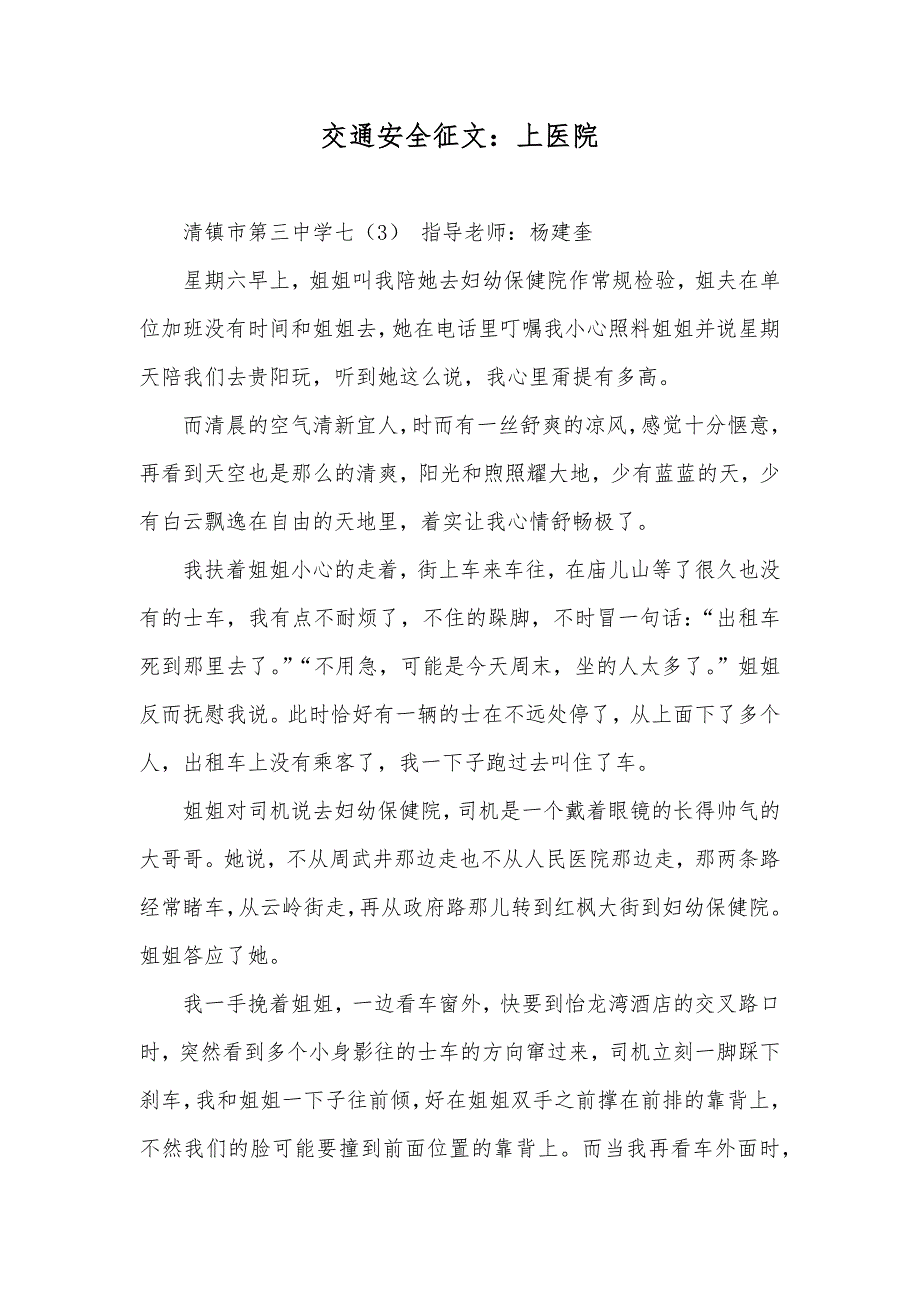 交通安全征文：上医院
清镇市第三中学七（3） 指导老师：杨建奎
星期六早上，姐姐叫我陪她去妇幼保健院作常规检验，姐夫在单
位加班没有时间和姐姐去，她在电话里叮嘱我小心照料姐姐并说星期
天陪我们去贵阳玩，听到她这么说，我心里甭提有多高。
而清晨的空气清新宜人，时而有一丝舒爽的凉风，感觉十分惬意，
再看到天空也是那么的清爽，阳光和煦照耀大地，少有蓝蓝的天，少
有白云飘逸在自由的天地里，着实让我心情舒畅极了。
我扶着姐姐小心的走着，街上车来车往，在庙儿山等了很久也没
有的士车，我有点不耐烦了，不住的跺脚，不时冒一句话：“出租车
死到那里去了。”“不用急，可能是今天周末，坐的人太多了。”姐姐
反而抚慰我说。此时恰好有一辆的士在不远处停了，从上面下了多个
人，出租车上没有乘客了，我一下子跑过去叫住了车。
姐姐对司机说去妇幼保健院，司机是一个戴着眼镜的长得帅气的
大哥哥。她说，不从周武井那边走也不从人民医院那边走，那两条路
经常睹车，从云岭街走，再从政府路那儿转到红枫大街到妇幼保健院。
姐姐答应了她。
我一手挽着姐姐，一边看车窗外，快要到怡龙湾酒店的交叉路口
时，突然看到多个小身影往的士车的方向窜过来，司机立刻一脚踩下
刹车，我和姐姐一下子往前倾，好在姐姐双手之前撑在前排的靠背上，
不然我们的脸可能要撞到前面位置的靠背上。而当我再看车外面时，